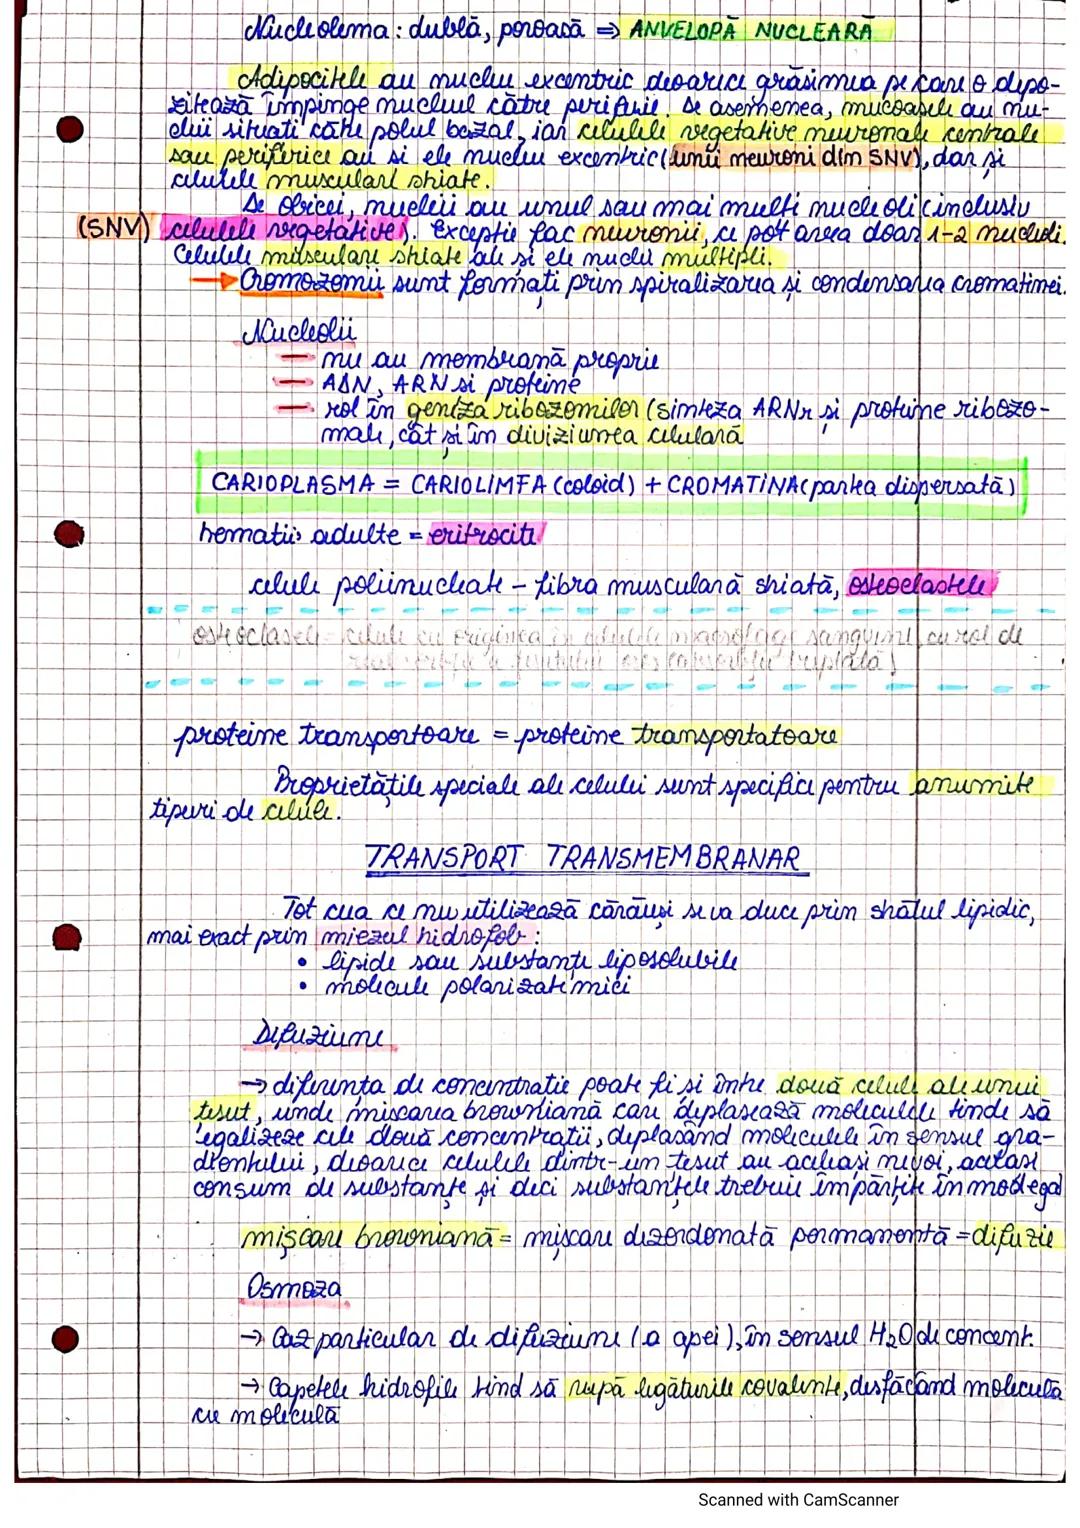 Nucleolema : dublă, poroasă ⇒ ANVELOPĂ NUCLEARĂ
Adipocitele au nucleu excentric deoarece grăsimea pe care o depo-
zitează împinge nucleul către periferie. De asemenea, mucoasele au nu-
clei situati către polul bazal, iar celulele vegetative neuronale centrale
sau periferice au si ele nucleu excentric (unii neuroni din SNV), dar și
celulele musculare striate.
De obicei, nucleii au unul sau mai multi nucleoli (inclusiv
(SNV) celulele vegetative). Excepție fac neuronii, ce pot avea doar 1-2 nucleoli.
Celulele musculare striate au si ele nuclei multipli.
→ Cromozomii sunt formați prin spiralizarea și condensarea cromatinei.
Nucleolii
— nu au membrană proprie
— ADN, ARN si proteine
— rol în geneza ribozomilor (sinteza ARNr și proteine ribozo-
male, cât și în diviziunea celulară
CARIOPLASMA = CARIOLIMFA (coloid) + CROMATINA (partea dispersată)
hematii adulte = eritrocite
celule polinucleate – fibra musculară striată, osteoclastele
osteoclasele = celule cu originea în celulele macrofage sanguine, cu rol de
proteine transportoare = proteine transportatoare
Proprietățile speciale ale celulei sunt specifice pentru anumite
tipuri de celule.
TRANSPORT TRANSMEMBRANAR
Tot ceea ce nu utilizează cărăuși se va duce prin stratul lipidic,
mai exact prin miezul hidrofob :
• lipide sau substanțe liposolubile
• molecule polarizate mici
Difuziune
→ diferența de concentratie poate fi si între două celule ale unui
tesut, unde miscarea browniană care deplasează moleculele tinde să
egalizeze cele două concentrații, deplasând moleculele în sensul gra-
dientului, deoarece celulele dintr-un tesut au aceleași nevoi, acelasi
consum de substanțe și deci substanțele trebuie împărțite în mod egal
mișcare browniană = mișcare dezordonată permanentă = difuzie
Osmoza
→ Caz particular de difuziune (a apei), în sensul H₂O de concent.
→ Capetele hidrofile tind să rupă legăturile covalente, desfăcând moleculă
cu moleculă
Scanned with CamScanner